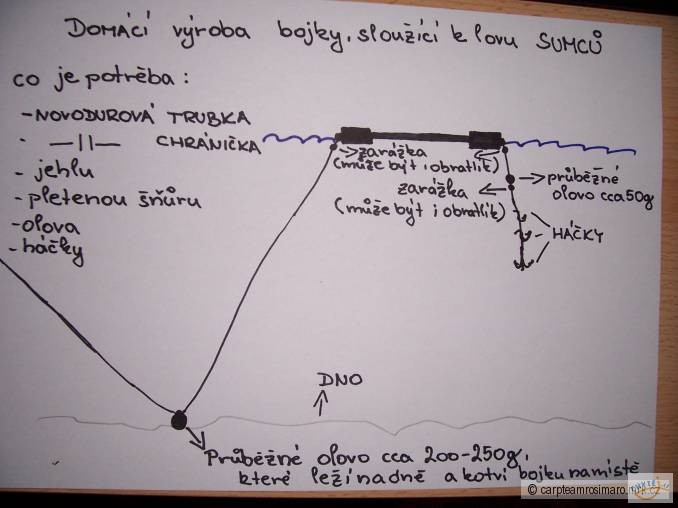 Domácí výroba bojky, sloužící k lovu SUMCŮ
co je potřeba:
-NOVODUROVÁ TRUBKA
- —||— CHRÁNIČKA
- jehlu
- pletenou šňůru
-olova
-háčky
zarážka
(může být i obratlík)
zarážka
(může být i obratlík)
průběžné
olovo cca 50g
HÁČKY
DNO
Průběžné olovo cca 200-250g,
které leží na dně a kotví bojku na místě
© carpteamrosimaro.